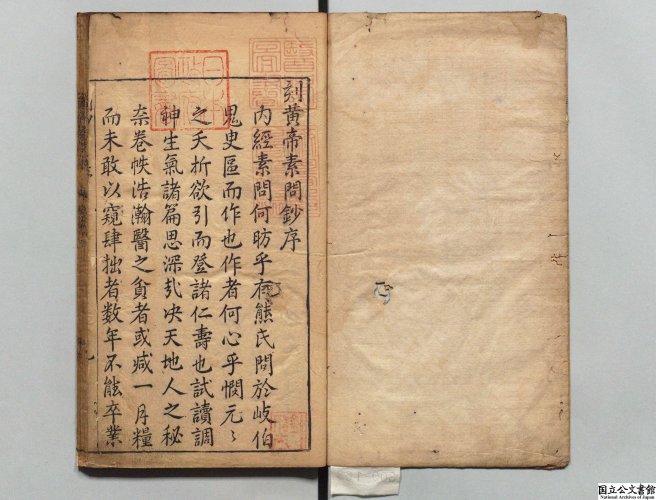 刻黄帝素問鈔序
内經素問何昉乎有熊氏問於岐伯
鬼臾區而作也作者何心乎憫元〻
之夭折欲引而登諸仁壽也試讀調
神生氣諸篇思深㢤决天地人之秘
柰卷帙浩瀚醫之貧者或减一月糧
而未敢以窺肆拙者数年不能卒業
国立公文書館
National Archives of Japan